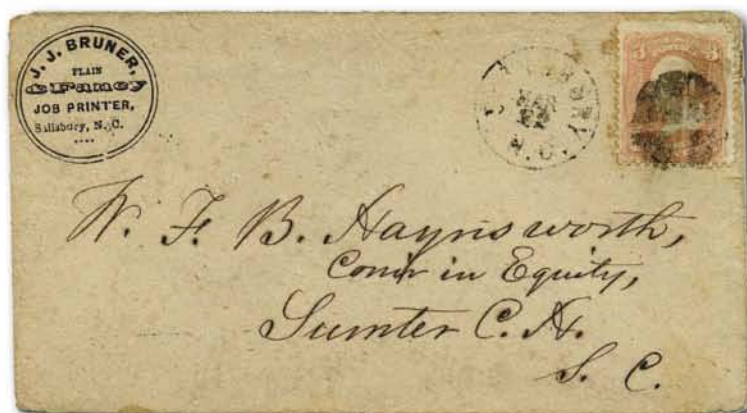 J. J. BRUNER,
PLAIN
& Fancy
JOB PRINTER,
Salisbury, N. C.
3 3
MAR
N. C.
W. F. B. Haynsworth,
Comr in Equity,
Sumter C. H.
S. C.